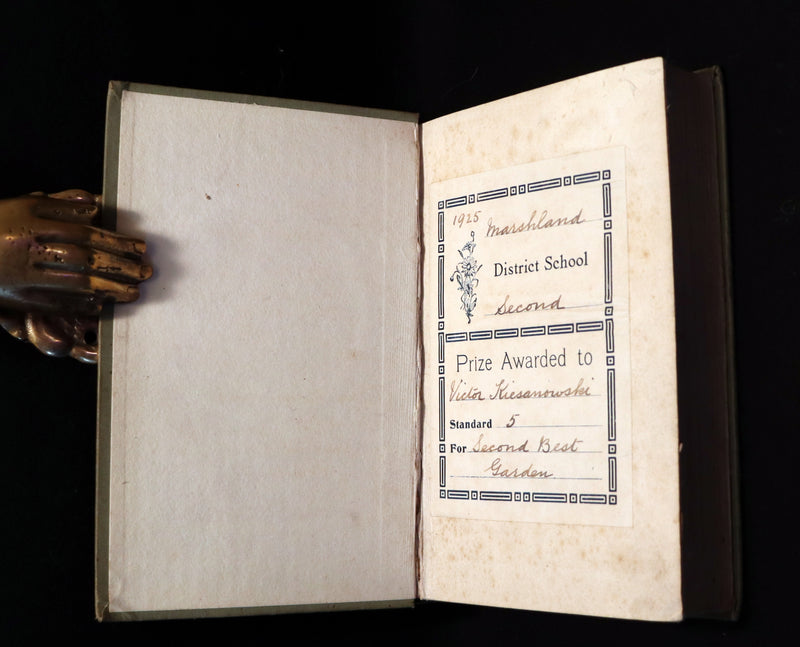 1925 Marshland
District School
Second
Prize Awarded to
Victor Kiesanowski
Standard 5
For Second Best
Garden